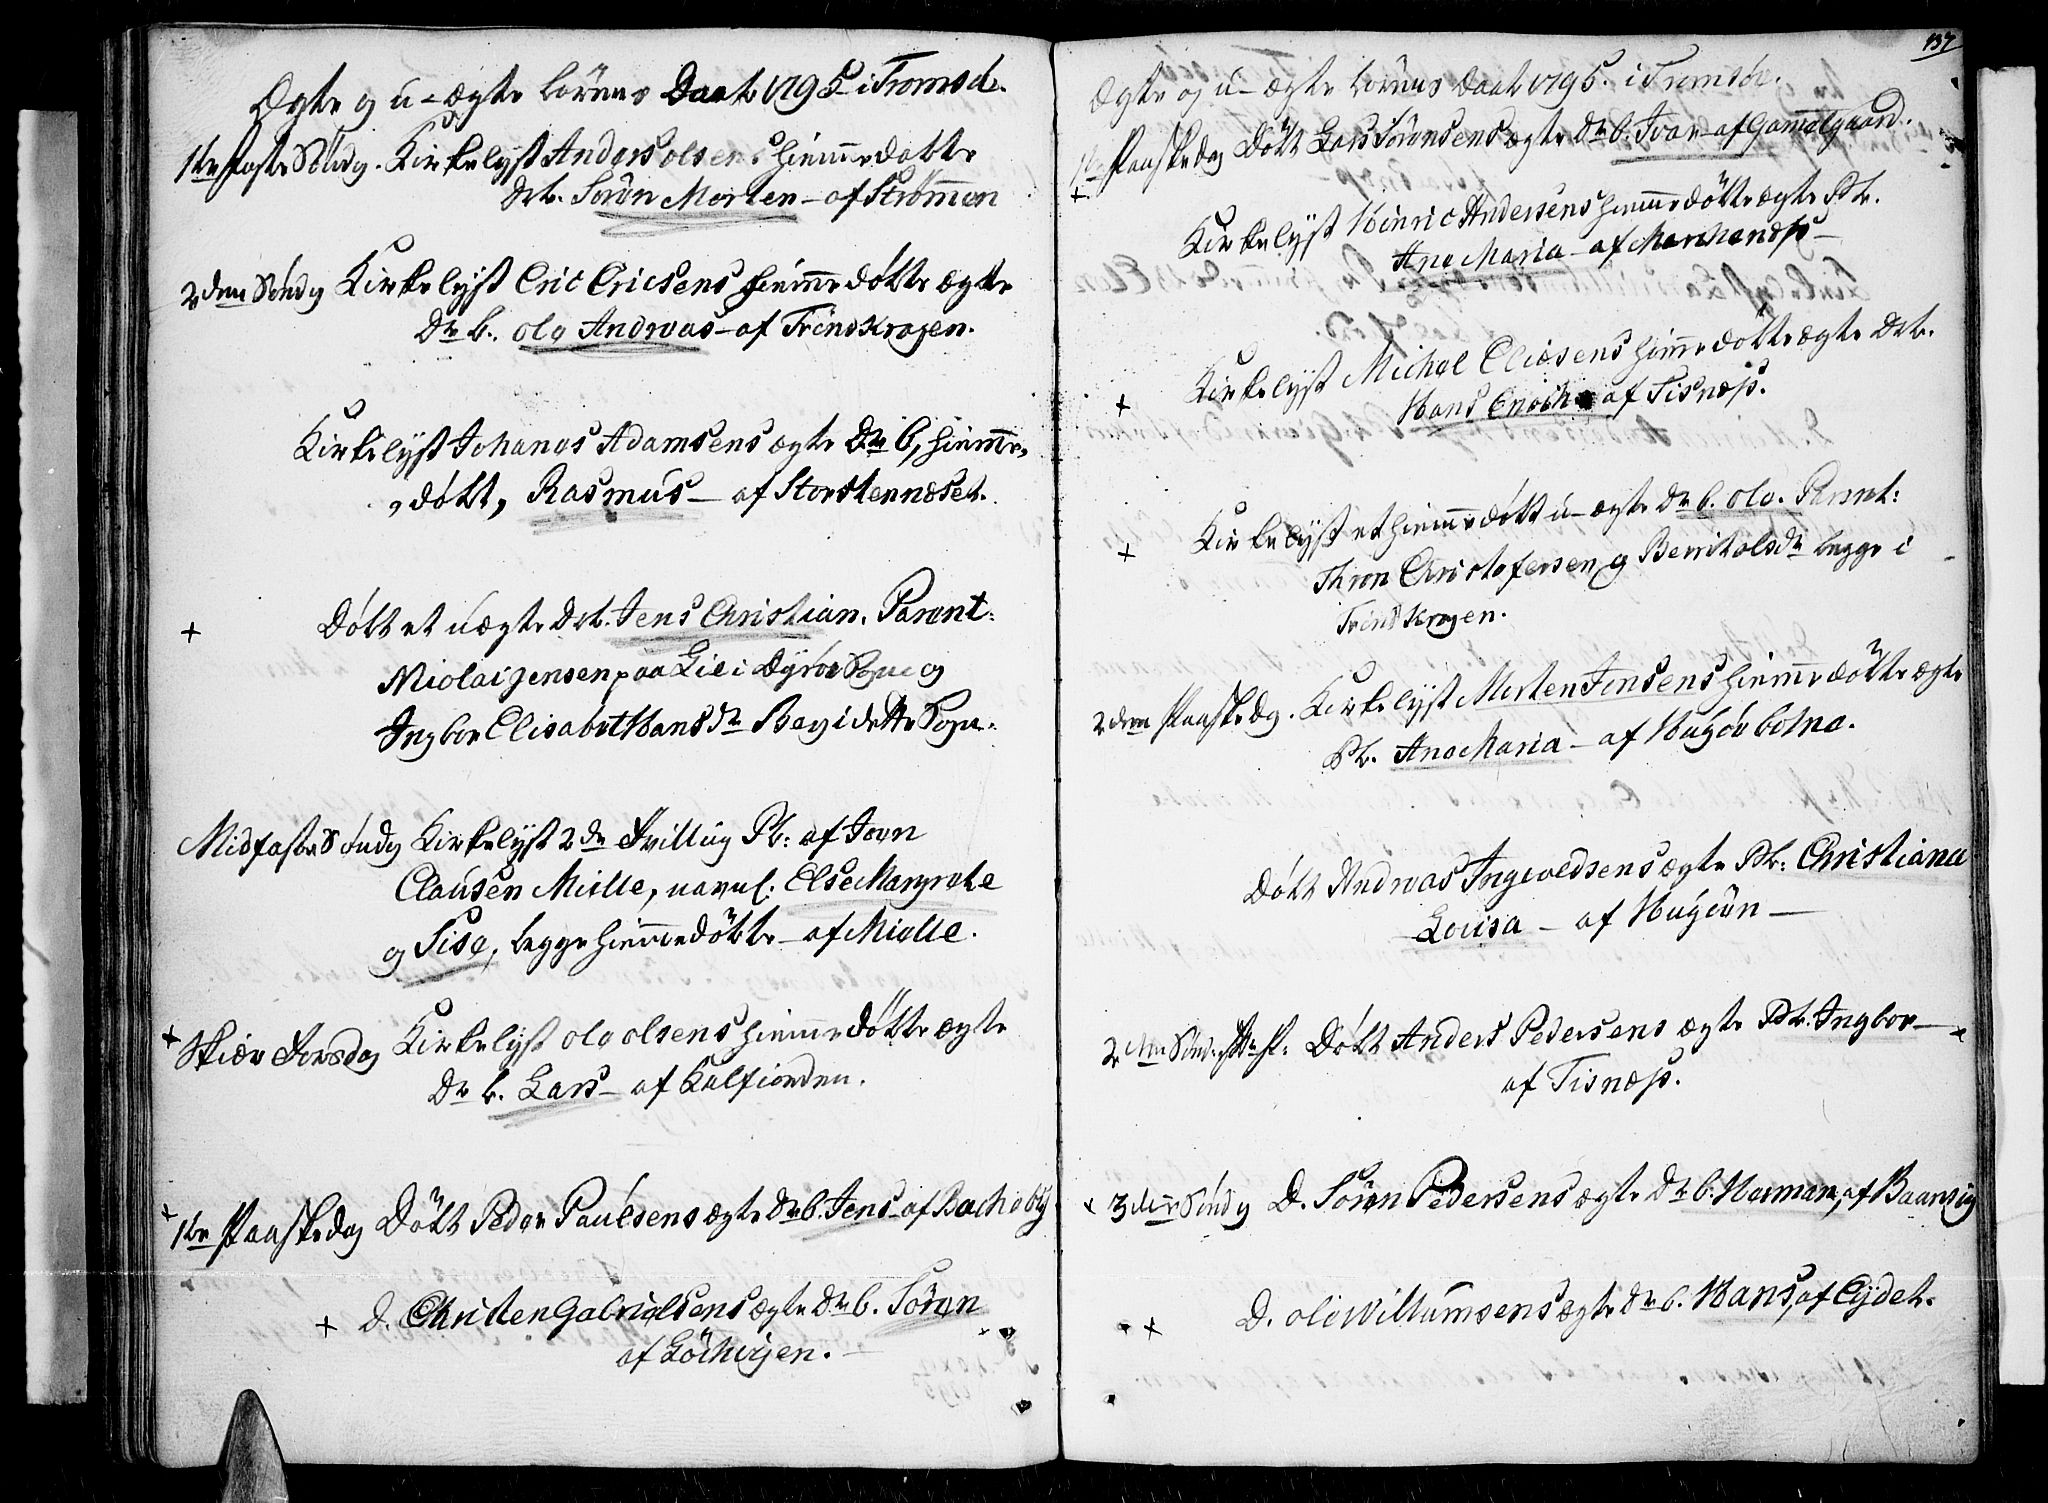 Ægte og u-ægte börnns Daab 1795 i Tromsöe.
1te faste Söndg. Kirkelyst Anders olsens hiemmedøbte
Drb. Sörön Morten - af Strömmen
2den Söndg Kirkelyst Eric Ericsens hiemmedøbte ægte
Dr b. ole Andreas - af Trindskrogen.
Kirkelyst Johanes Adamsens ægte Dr b, hiemme-
døbt, Rasmus - af Storstennæset.
+ Døbt et uægte Drb. Jens Christian. Parent:
Nicolai Jensen paa Lie i Dyröe Sogn og
Ingbor Elisabet Hans dr Beg i dette Sogn.
Midfaste Söndg Kirkelyst 2de Tvilling Pb: af Joen
Clausen Mielle, navnl: Else Margrete
og Sise, begge hiemmedøbte - af Mielle.
+ Skiær Torsdag Kirkelyst ole olsens hiemmedøbte ægte
Dr b. Lars - af Kalfiorden.
+ 1te Paaskedag Døbt Peder Paulsens ægte Dr b. Jens - af Bacheby
+ D. Christen Gabrielsens ægte Dr b. Sören
af
137
Ægte og u-ægte börnns Daab 1795. i Tromsöe.
1te Paaskedag Døbt Lars Sörensens ægte Dr b. Ivar - af Gammelgaard.
+
Kirkelyst Hinric Andersens hiemmedøbte ægte Pb.
Ane Maria - af
+ Kirkelyst Michel Eliæsens hiemmedøbte ægte Drb.
Hans Enoch af Tisnæss.
+ Kirkelyst et hiemmedøbt u-ægte Dr b. ole. Parent:
Thron Christofersen og Berrit olsdr begge i
Trindskrogen.
2den Paaskedg. Kirkelyst Morten Jensens hiemmedøbte ægte
Pb. Ane Maria - af
Døbt Andreas Ingevoldsens ægte Pb: Christiana
Lovisa - af
2den Söndg Døbt Anders Pedersens ægte Pb. Ingbor - +
af Tisnæss.
+ 3die Söndg D. Sören Pedersens ægte Dr b. Herman, af Baarvig
+ D. ole Willumsens ægte Dr b. Hans, af Eydet.